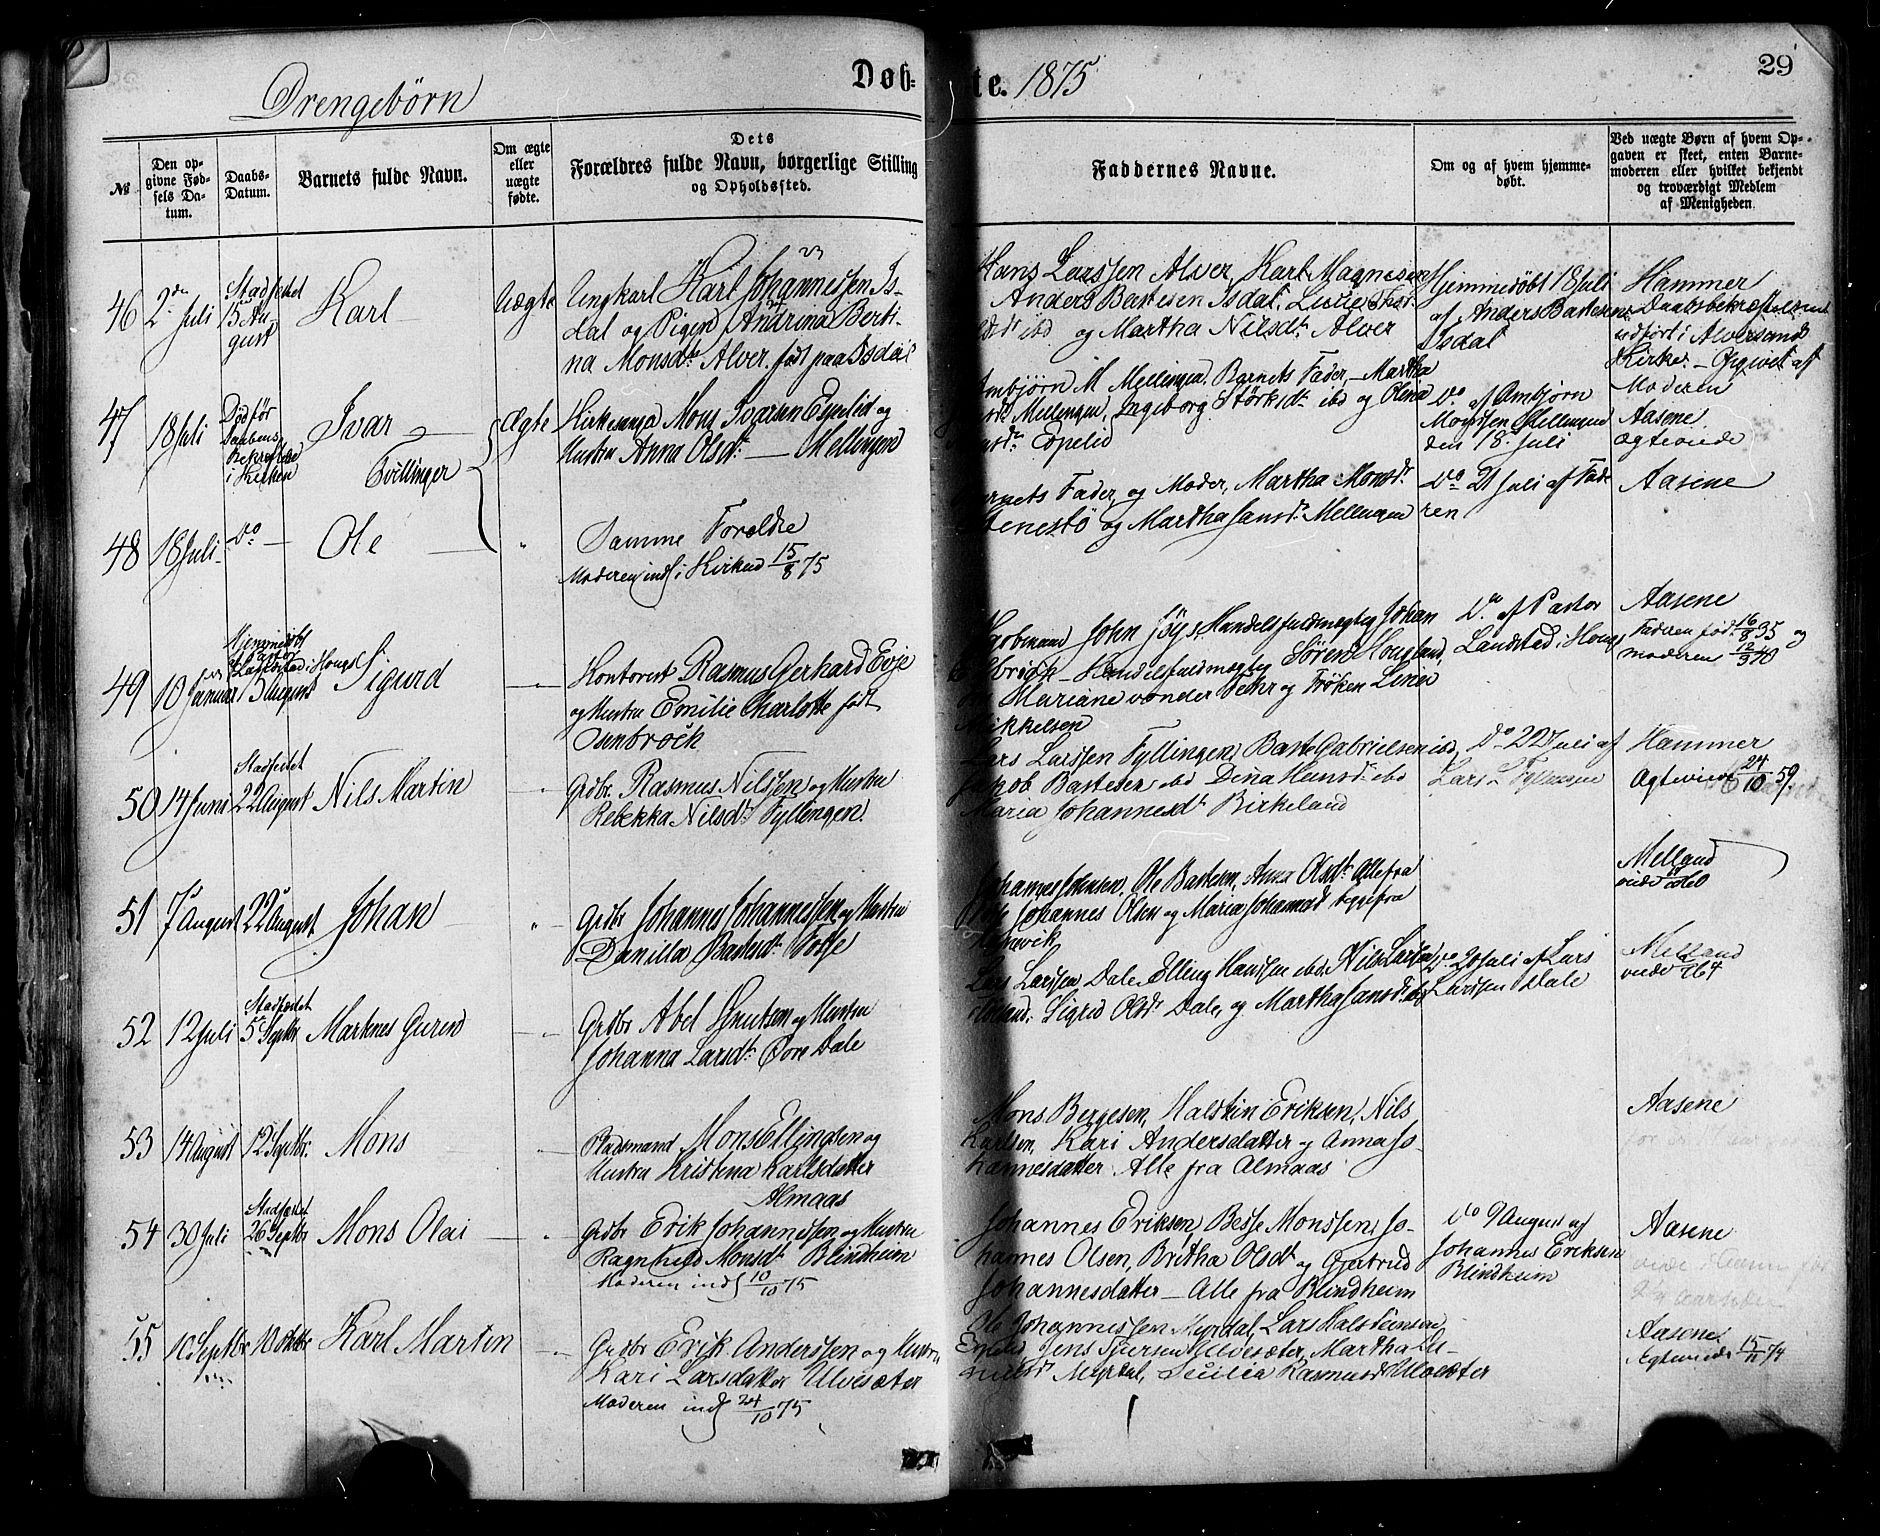 Drengebørn
Døb-
te. 1875
29
№
Den op-
givne Fød-
sels Da-
tum.
Daabs-
Datum.
Barnets fulde Navn.
Om ægte
eller
uægte
fødte.
Dets
Forældres fulde Navn, borgerlige Stilling
og Opholdssted.
Faddernes Navne.
Om og af hvem hjemme-
døbt.
Ved uægte Børn af hvem Op-
gaven er skeet, enten Barne-
moderen eller hvilket bekjendt
og troværdigt Medlem
af Menigheden.
46
2den Juli
Stadfestet
15 Au-
gust
Karl
Uægte
Ungkarl Karl Johannessen Is-
dal og Pigen Andrina Berti-
na Monsdtr Alver. født paa Isdal
Hans Larssen Alver, Karl Magnesen
Anders Bastesen Isdal,
ibd og Martha Nilsdtr Alver
Hjemmedøbt 18 Juli
af Anders Bastesen
Isdal
Hammer
Daabsbekræftelsen
udført i Alversund
Kirke. Opgivet af
Moderen
47
18 Juli
Død før
Daabens
Bekræftelse
i Kirken
Ivar
Tvillinger
Ægte
Kirkesanger Mons Ivarsen Espelid og
Hustru Anna Olsdtr — Mellingen
Ambjørn M Mellingen, Barnets Fader, Martha
Mellingen, Ingeborg Størksdtr ibd og Olena
Espelid
Do af Ambjørn
Monssen Mellingen
den 18. Juli
Aasene
ægteviede
48
18 Juli
Do
Ole
"
Samme Forældre
Moderen indl i Kirken 15/8 75
Barnets Fader og Moder, Martha Monsdr.
og Martha Jansdtr Mellingen
Do 21 Juli af Fade
ren
Aasene
49
10 Januar
Hjemmedøbt
af Pastor
Landstad i Hougs
15 August
Sigurd
"
Kontorist Rasmus Gerhard Evje
og Hustru Emilie Charlotte født
Osenbrock
John Joys, Handelsfuldmægtig Johan
Handelsfuldmægtig Sören Hougland,
Mariane vonder Fehr og Frøken Lina
Mikkelsen
Do af Pastor
Landstad i Hougs
Aasene
Faderen født 16/8 35 og
moderen 12/3 40
50
14 Juni
Stadfestet
22 August
Nils Martin
"
Grdbr. Rasmus Nilssen og Hustru
Rebekka Nilsdtr Fyllingen.
Lars Larssen Fyllingen, Baste Gabrielsen ibd,
Jakob Bastesen ibd Dina Hansdtr ibd
Maria Johannesdtr Birkeland
Do 22 Juli af
Lars L Fyllingen
Hammer
Ægteviede 24/10 59.
51
7de August
22 August
Johan
"
Grdbr Johannes Johannessen og Hustru
Danilla Bastesdtr Fosse
Johannes Johnsen, Ole Bastesen, Anna Olsdtr Alle fra
Johannes Olsen og Maria Johannesdtr begge fra
Melland
viede
52
12 Juli
Stadfestet
5 Septbr
Martines Gurin
"
Grdbr Abel Knutsen og Hustru
Johanna Larsdtr Øvre Dale
Lars Larssen Dale Elling Hanssen ibd Nils Larssen
Sigrid Olsdtr Dale, og Martha Jansdtr ibd
Do 20 Juli af Lars
Larssen Dale
Melland
53
14 August
12 Septbr.
Mons
"
Pladsmand Mons Ellingsen og
Hustru Kristina Karlsdatter
Almaas
Mons Bergesen, Halstein Eriksen, Nils
Karlsen, Kari Andersdatter og Anna Jo-
hannesdatter Alle fra Almaas
Aasene
54
30 Juli
Stadfestet
26 Septbr
Mons Olai
"
Grdbr Erik Johannessen og Hustru
Ragnhild Monsdtr Blindheim
Moderen indl 10/10 75
Johannes Eriksen, Besse Monssen, Jo-
hannes Olsen, Britha Olsdtr og Gjertrud
Johannesdatter — Alle fra Blindheim
Do 9 August af
Johannes Eriksen
Blindheim
Aasene
55
10 Septbr
10 Oktbr
Karl Martin
"
Grdbr Erik Anderssen og Hustru
Kari Larsdatter Ulvesæter
Moderen indl 24/10 75
Ole Johannessen Myrdal, Lars Halsteinsen
Jens Iversen Ulvesæter, Martha
Myrdal, Cecilia Rasmusdtr Ulvesæter
Aasene
Ægteviede 15/11 74